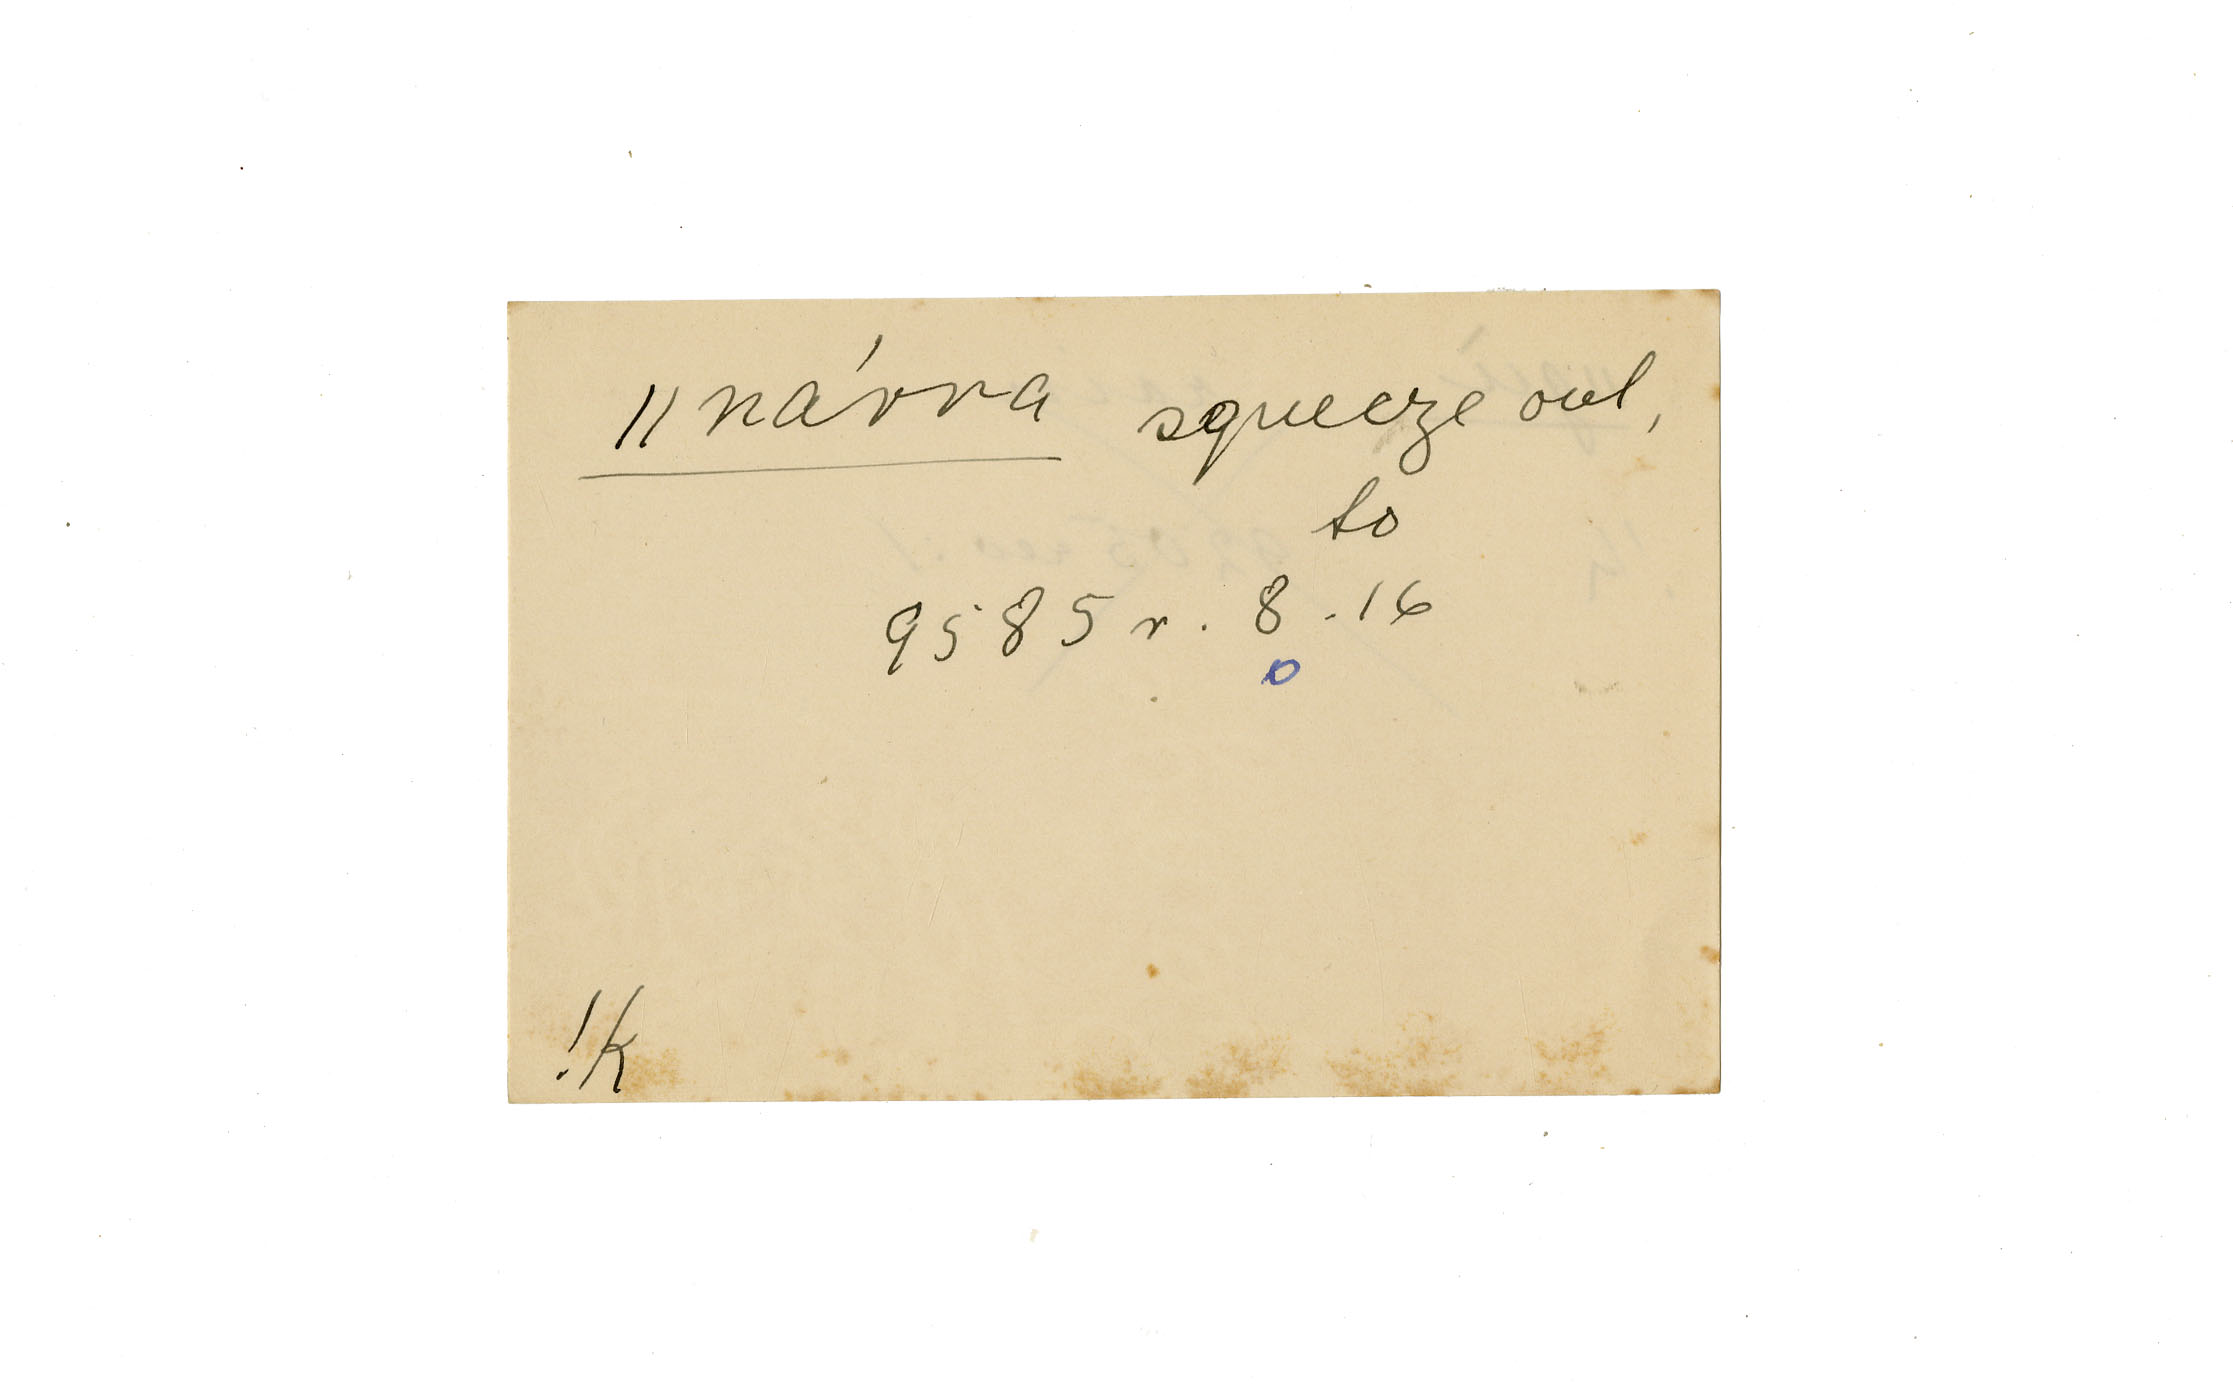 ǁnávra squeeze out,
to
9585 r. 8.16
o
!k